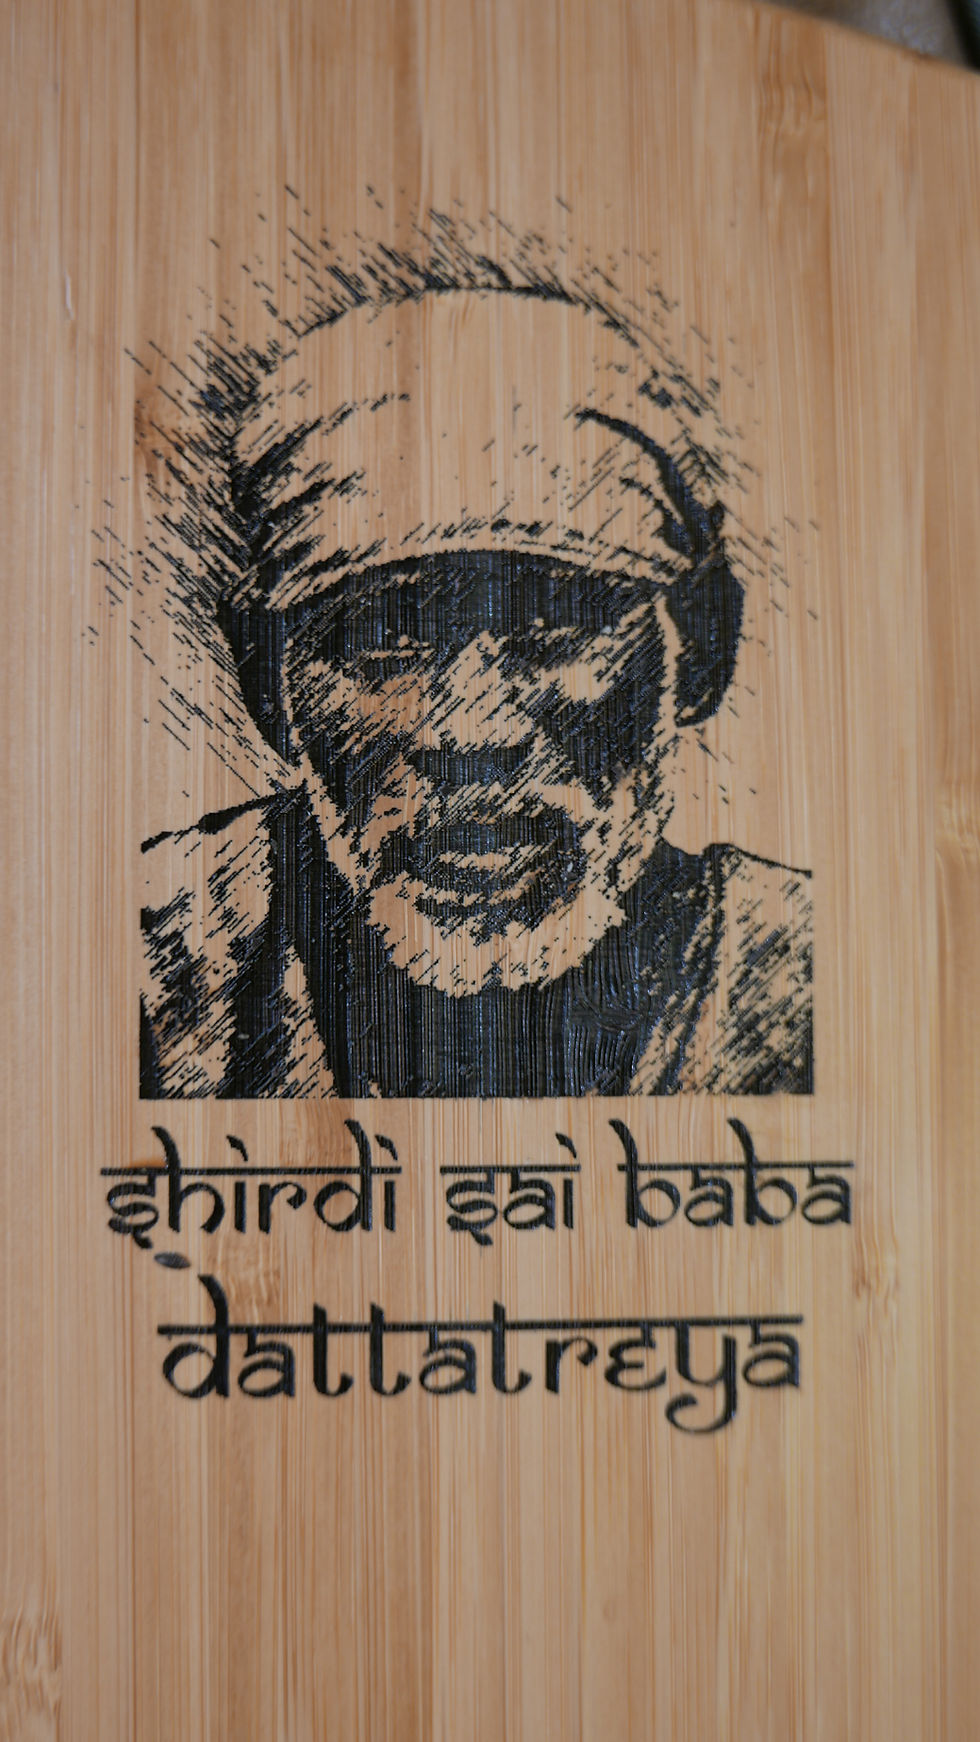 shirdi sai baba
dattatreya